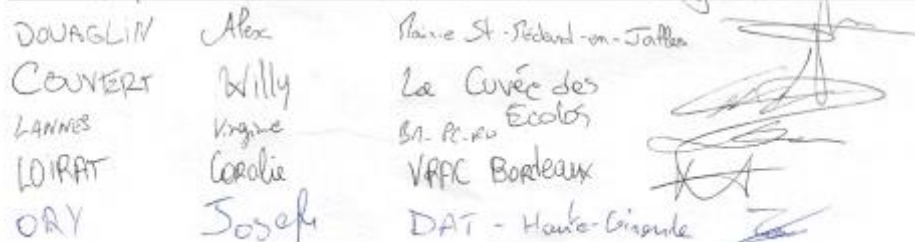 DOUAGLIN Alex Mairie St-Médard-en-Jalles
COUVERT Willy La Cuvée des Écolos
LANNES Virginie
LOIRAT Coralie VRAC Bordeaux
ORY Joseph DAT - Haute-Gironde